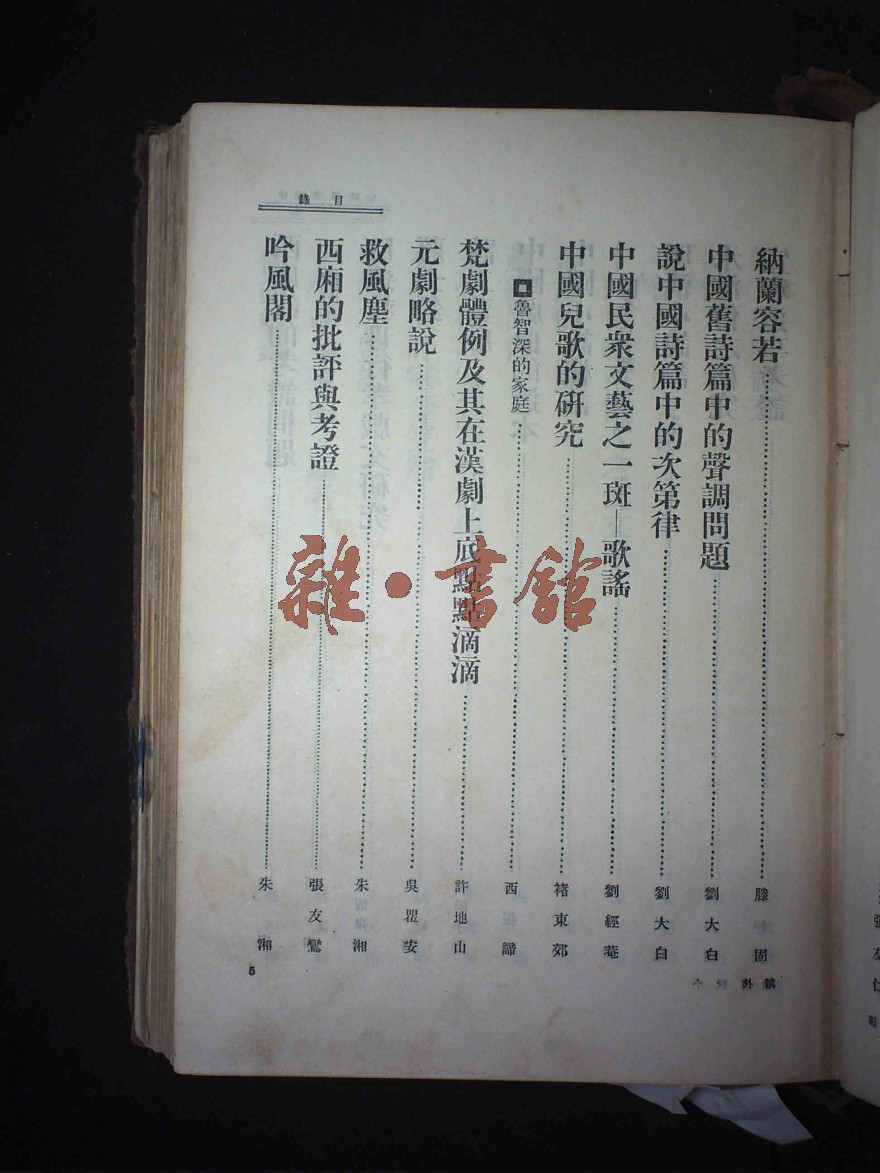 目錄
納蘭容若 滕固
中國舊詩篇中的聲調問題 劉大白
說中國詩篇中的次第律 劉大白
中國民衆文藝之一斑—歌謠 劉經菴
中國兒歌的研究 褚東郊
魯智深的家庭 西諦
梵劇體例及其在漢劇上底點點滴滴 許地山
元劇略說 吳瞿安
救風塵 朱湘
西廂的批評與考證 張友鸞
吟風閣 朱湘
號外
5
雜·書館